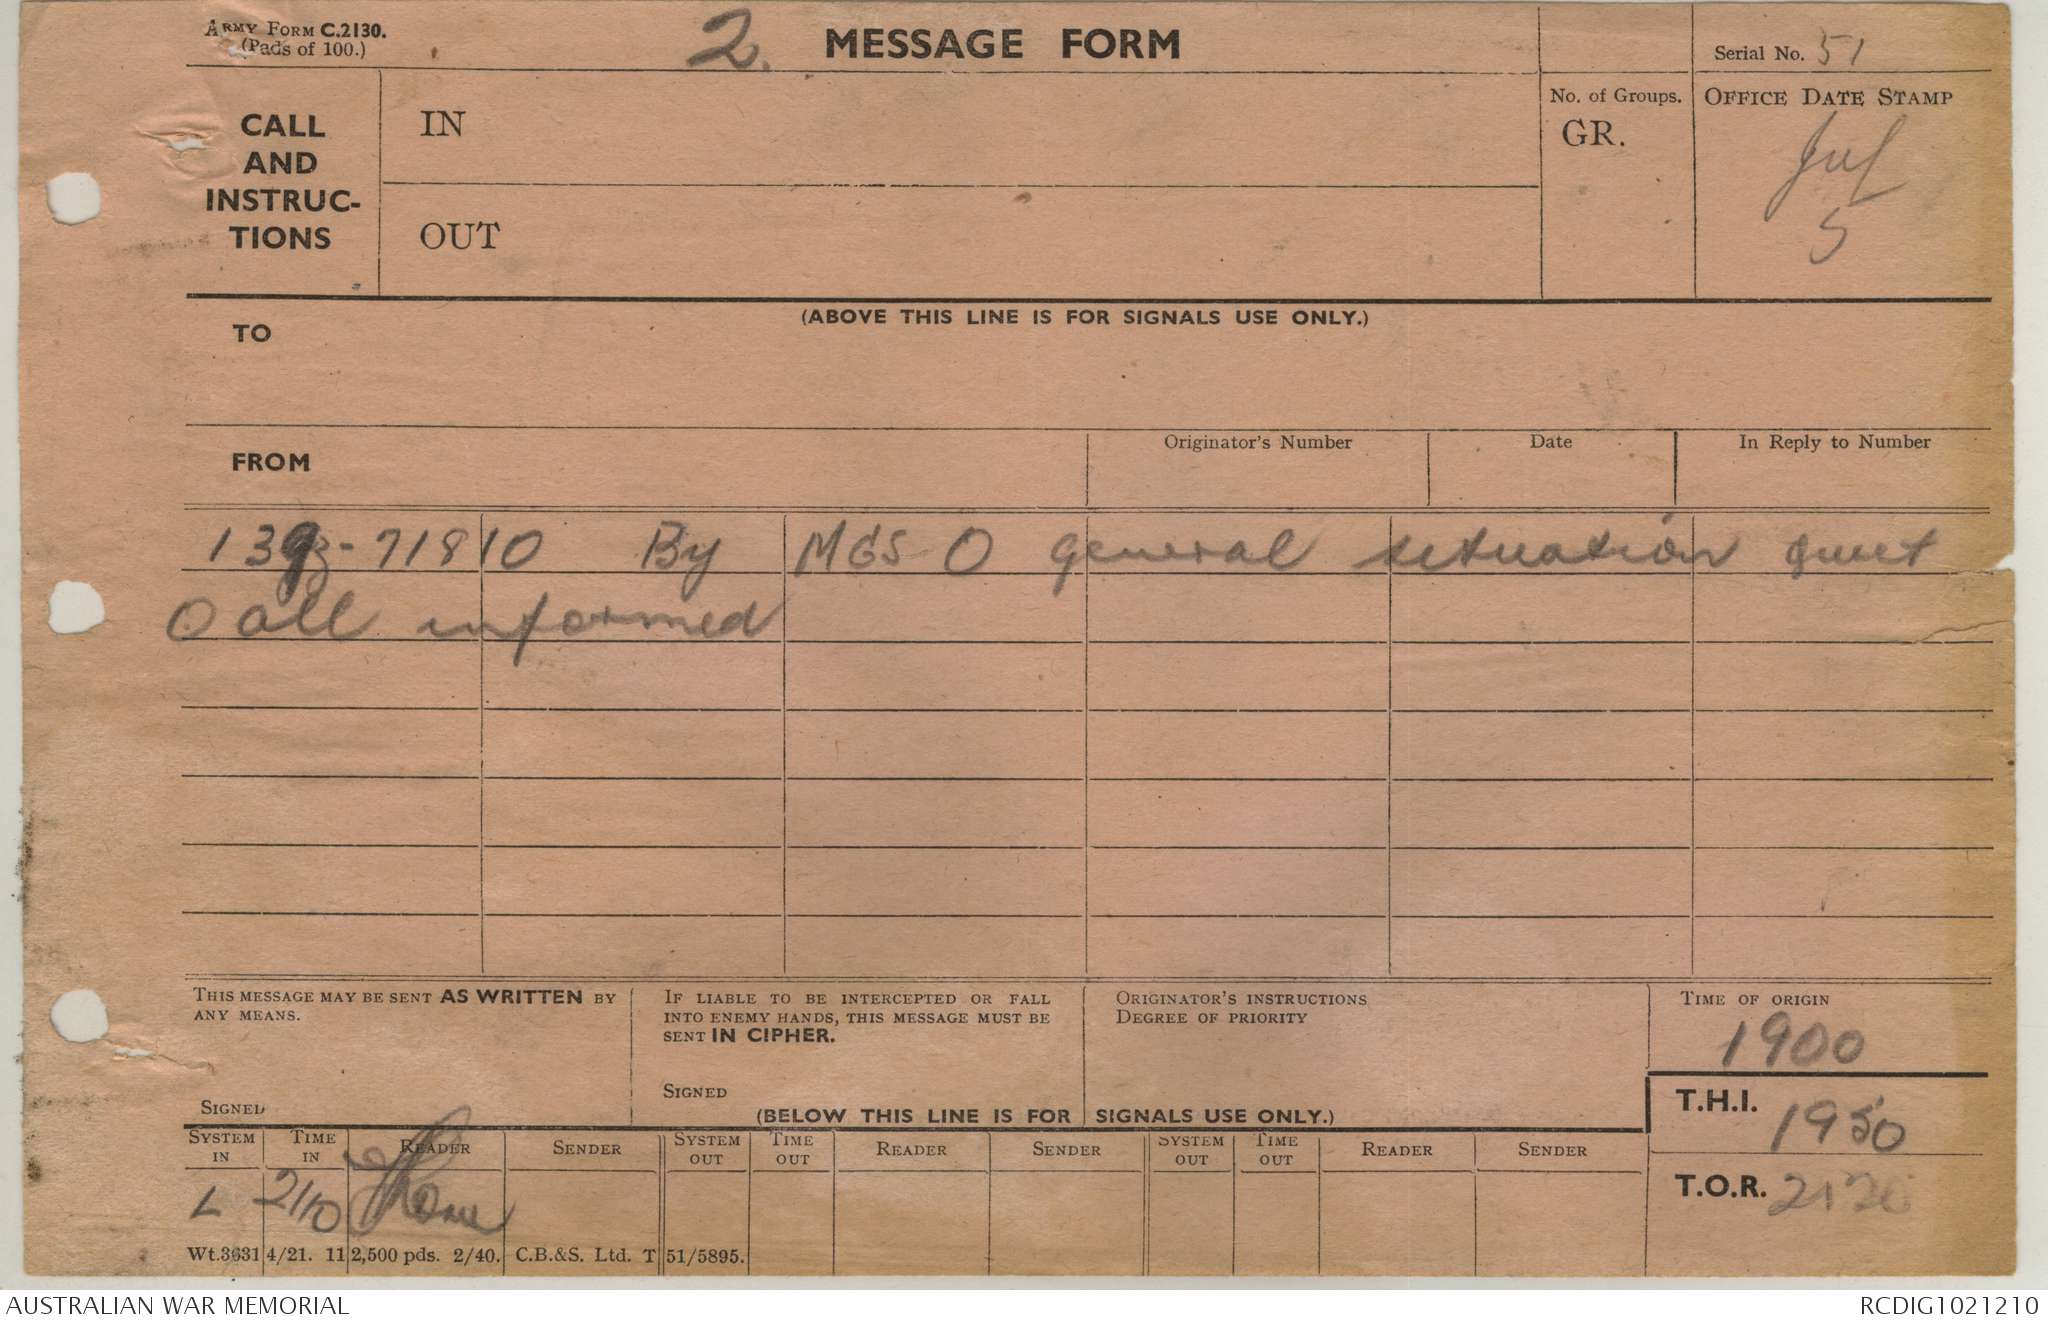 ARMY FORM C.2130.
(Pads of 100.)
2.
MESSAGE FORM
Serial No. 51
CALL
AND
INSTRUC-
TIONS
IN
OUT
No. of Groups.
GR.
OFFICE DATE STAMP
5
(ABOVE THIS LINE IS FOR SIGNALS USE ONLY.)
TO
FROM
Originator's Number
Date
In Reply to Number
71810 By MGS O general situation quiet
O all informed
THIS MESSAGE MAY BE SENT AS WRITTEN BY
ANY MEANS.
SIGNED
IF LIABLE TO BE INTERCEPTED OR FALL
INTO ENEMY HANDS, THIS MESSAGE MUST BE
SENT IN CIPHER.
SIGNED
ORIGINATOR'S INSTRUCTIONS
DEGREE OF PRIORITY
TIME OF ORIGIN
1900
(BELOW THIS LINE IS FOR SIGNALS USE ONLY.)
T.H.I. 1950
T.O.R.
SYSTEM IN
TIME IN
READER
SENDER
SYSTEM OUT
TIME OUT
READER
SENDER
SYSTEM OUT
TIME OUT
READER
SENDER
L 2110
Wt.3631 4/21. 11 2,500 pds. 2/40. C.B.&S. Ltd. T 51/5895.
AUSTRALIAN WAR MEMORIAL
RCDIG1021210